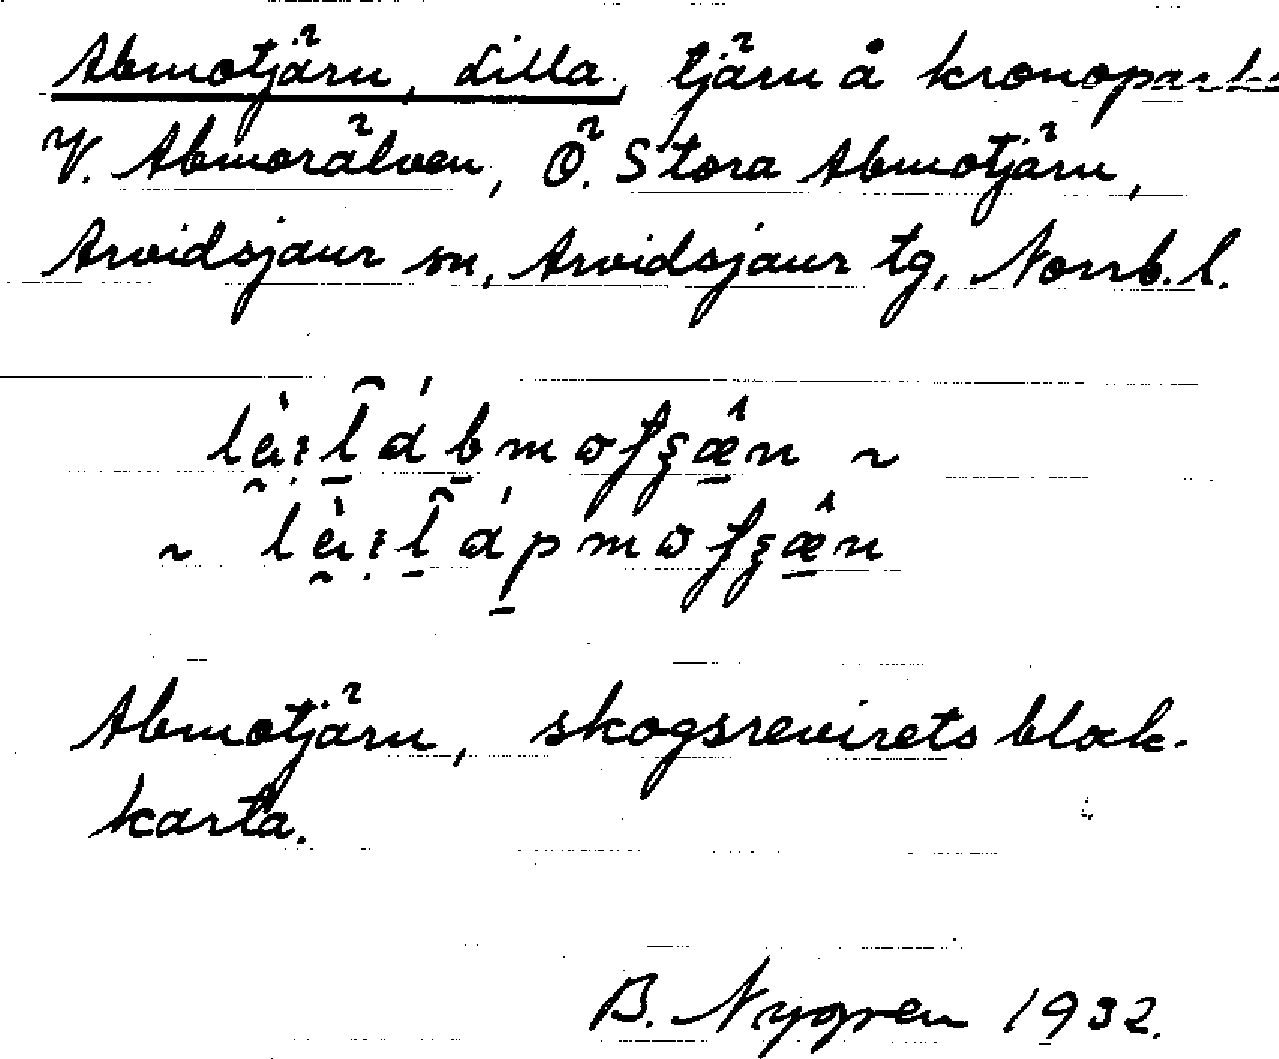 Abmotjärn, Lilla, tjärn å kronoparken
V. Abmorälven, Ö. Stora Abmotjärn,
Arvidsjaur sn, Arvidsjaur tg, Norrb. l.
Abmotjärn, skogsrevirets block-
karta.
B. Nygren 1932.